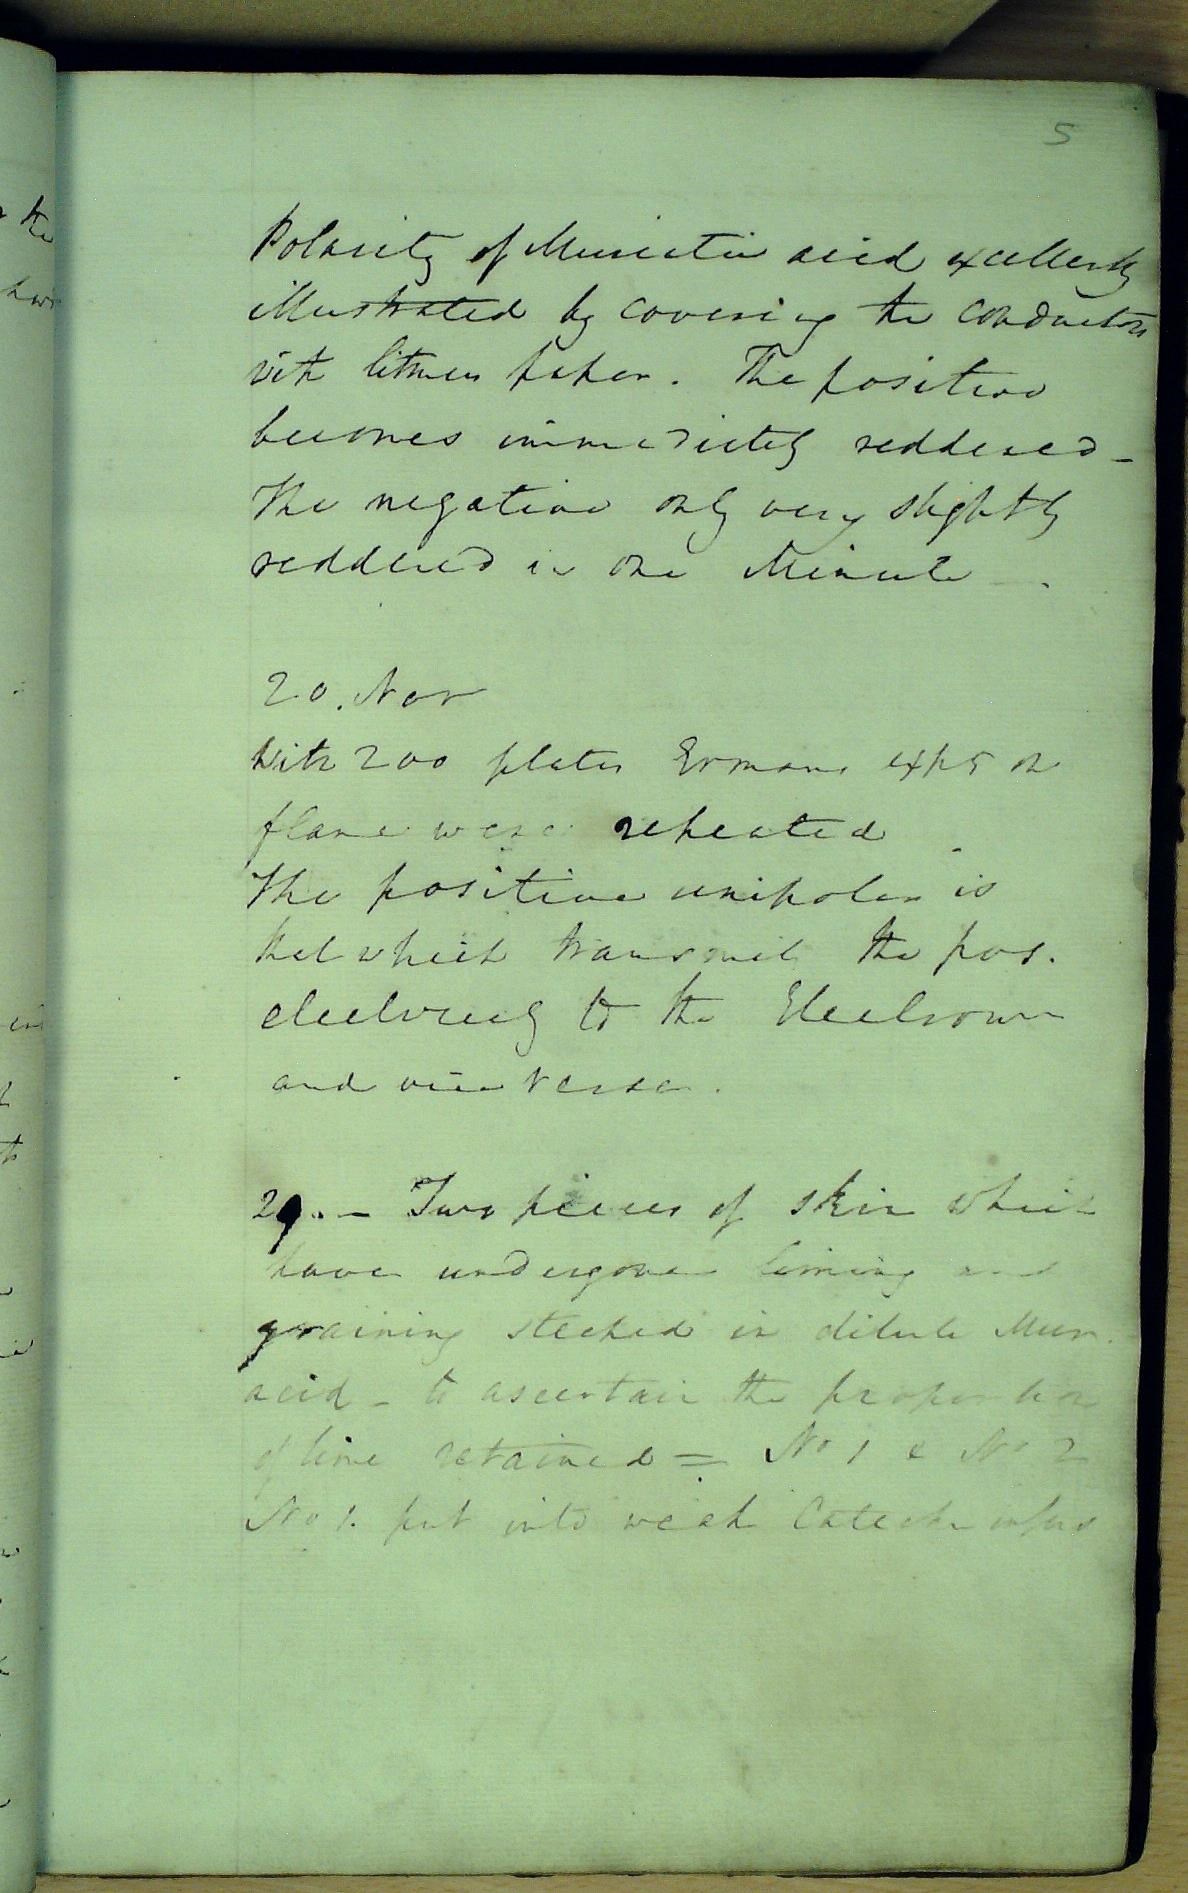 5
Polarity of Muriatic acid excellently
illustrated by covering the conductors
with litmus paper. The positive
becomes immediately reddened -
The negative only very slightly
reddened in one Minute.
20. Nov
With 200 plates Ermans exps on
flame were repeated
The positive unipolar is
that which transmits the pos.
electricity to the Electrom
and vice versa.
29. - Two pieces of skin which
have undergone liming and
graining steeped in dilute Mur.
acid - to ascertain the proportion
of lime retained = No 1 & No 2
No 1. put into weak Catechu infus